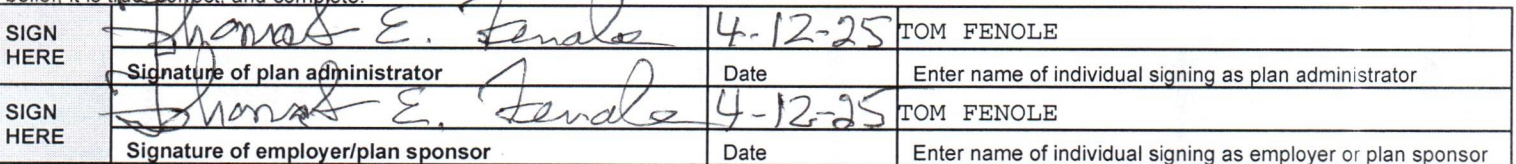 belief, it is true, correct, and complete.
SIGN HERE Thomas E. Fenole 4-12-25 TOM FENOLE
Signature of plan administrator Date Enter name of individual signing as plan administrator
SIGN HERE Thomas E. Fenole 4-12-25 TOM FENOLE
Signature of employer/plan sponsor Date Enter name of individual signing as employer or plan sponsor